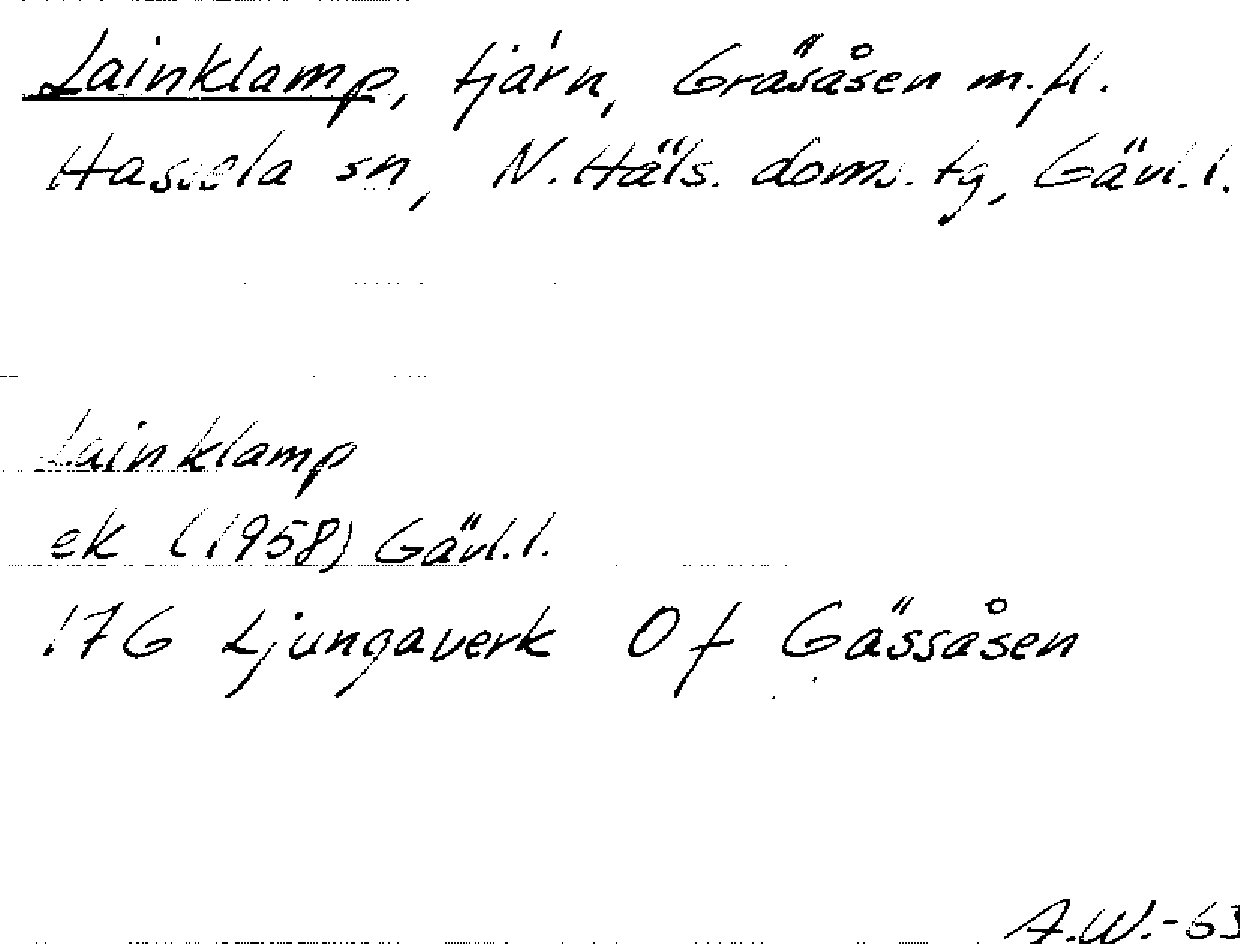 Lainklamp, tjärn, Gräsåsen m.fl.
Hassela sn, N. Häls. doms. tg, Gävl. l.
Lainklamp
ek (1958) Gävl. l.
17G Ljungaverk 0 f Gässåsen
A.W.-63